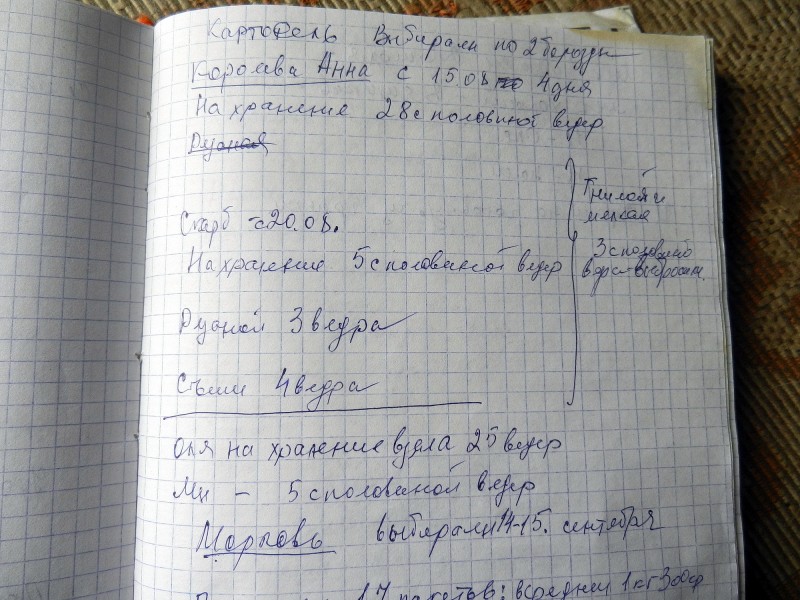 Картофель Выбирали по 2 борозды
Королева Анна с 15.08 по 4 дня
На хранение 28 с половиной ведер
Скарб с 20.08.
На хранение 5 с половиной ведер
Гнилой и
мелкая
3 с половиной
ведра выбросили.
3 ведра
Съели 4 ведра
Оля на хранение взяла 25 ведер
Мы - 5 с половиной ведер
Морковь выбирали 14-15. сентября
17 пакетов: в среднем 1 кг 300 гр